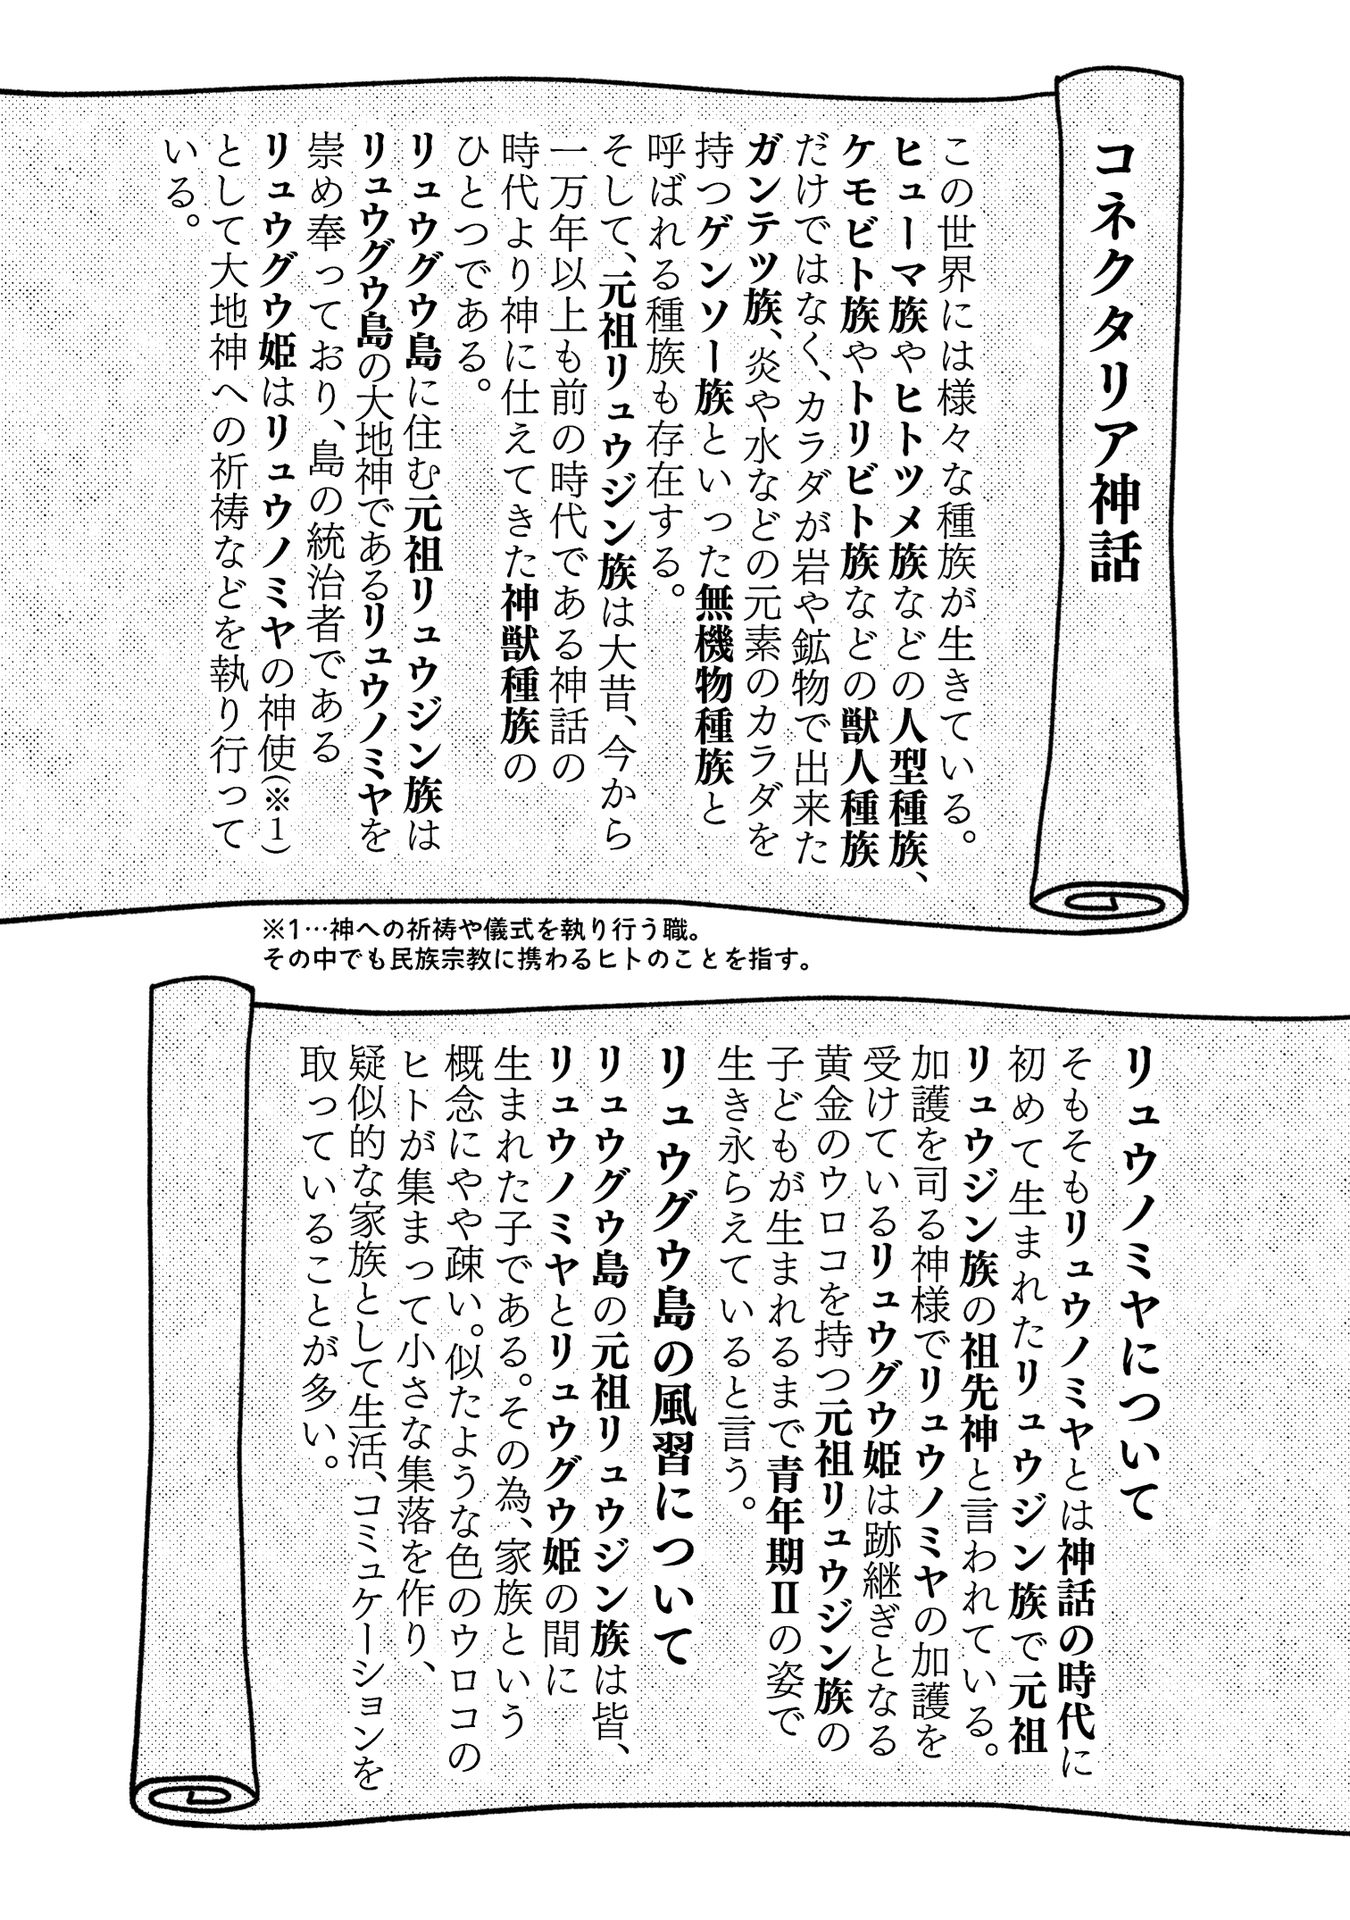 コネクタリア神話
この世界には様々な種族が生きている。
ヒューマ族やヒトツメ族などの人型種族、
ケモビト族やトリビト族などの獣人種族
だけではなく、カラダが岩や鉱物で出来た
ガンテツ族、炎や水などの元素のカラダを
持つゲンソー族といった無機物種族と
呼ばれる種族も存在する。
そして、元祖リュウジン族は大昔、今から
一万年以上も前の時代である神話の
時代より神に仕えてきた神獣種族の
ひとつである。
リュウグウ島に住む元祖リュウジン族は
リュウグウ島の大地神であるリュウノミヤを
崇め奉っており、島の統治者である
リュウグウ姫はリュウノミヤの神使(※1)
として大地神への祈祷などを執り行って
いる。
※1…神への祈祷や儀式を執り行う職。
その中でも民族宗教に携わるヒトのことを指す。
リュウノミヤについて
そもそもリュウノミヤとは神話の時代に
初めて生まれたリュウジン族で元祖
リュウジン族の祖先神と言われている。
加護を司る神様でリュウノミヤの加護を
受けているリュウグウ姫は跡継ぎとなる
黄金のウロコを持つ元祖リュウジン族の
子どもが生まれるまで青年期Ⅱの姿で
生き永らえていると言う。
リュウグウ島の風習について
リュウグウ島の元祖リュウジン族は皆、
リュウノミヤとリュウグウ姫の間に
生まれた子である。その為、家族という
概念にやや疎い。似たような色のウロコの
ヒトが集まって小さな集落を作り、
疑似的な家族として生活、コミュケーションを
取っていることが多い。